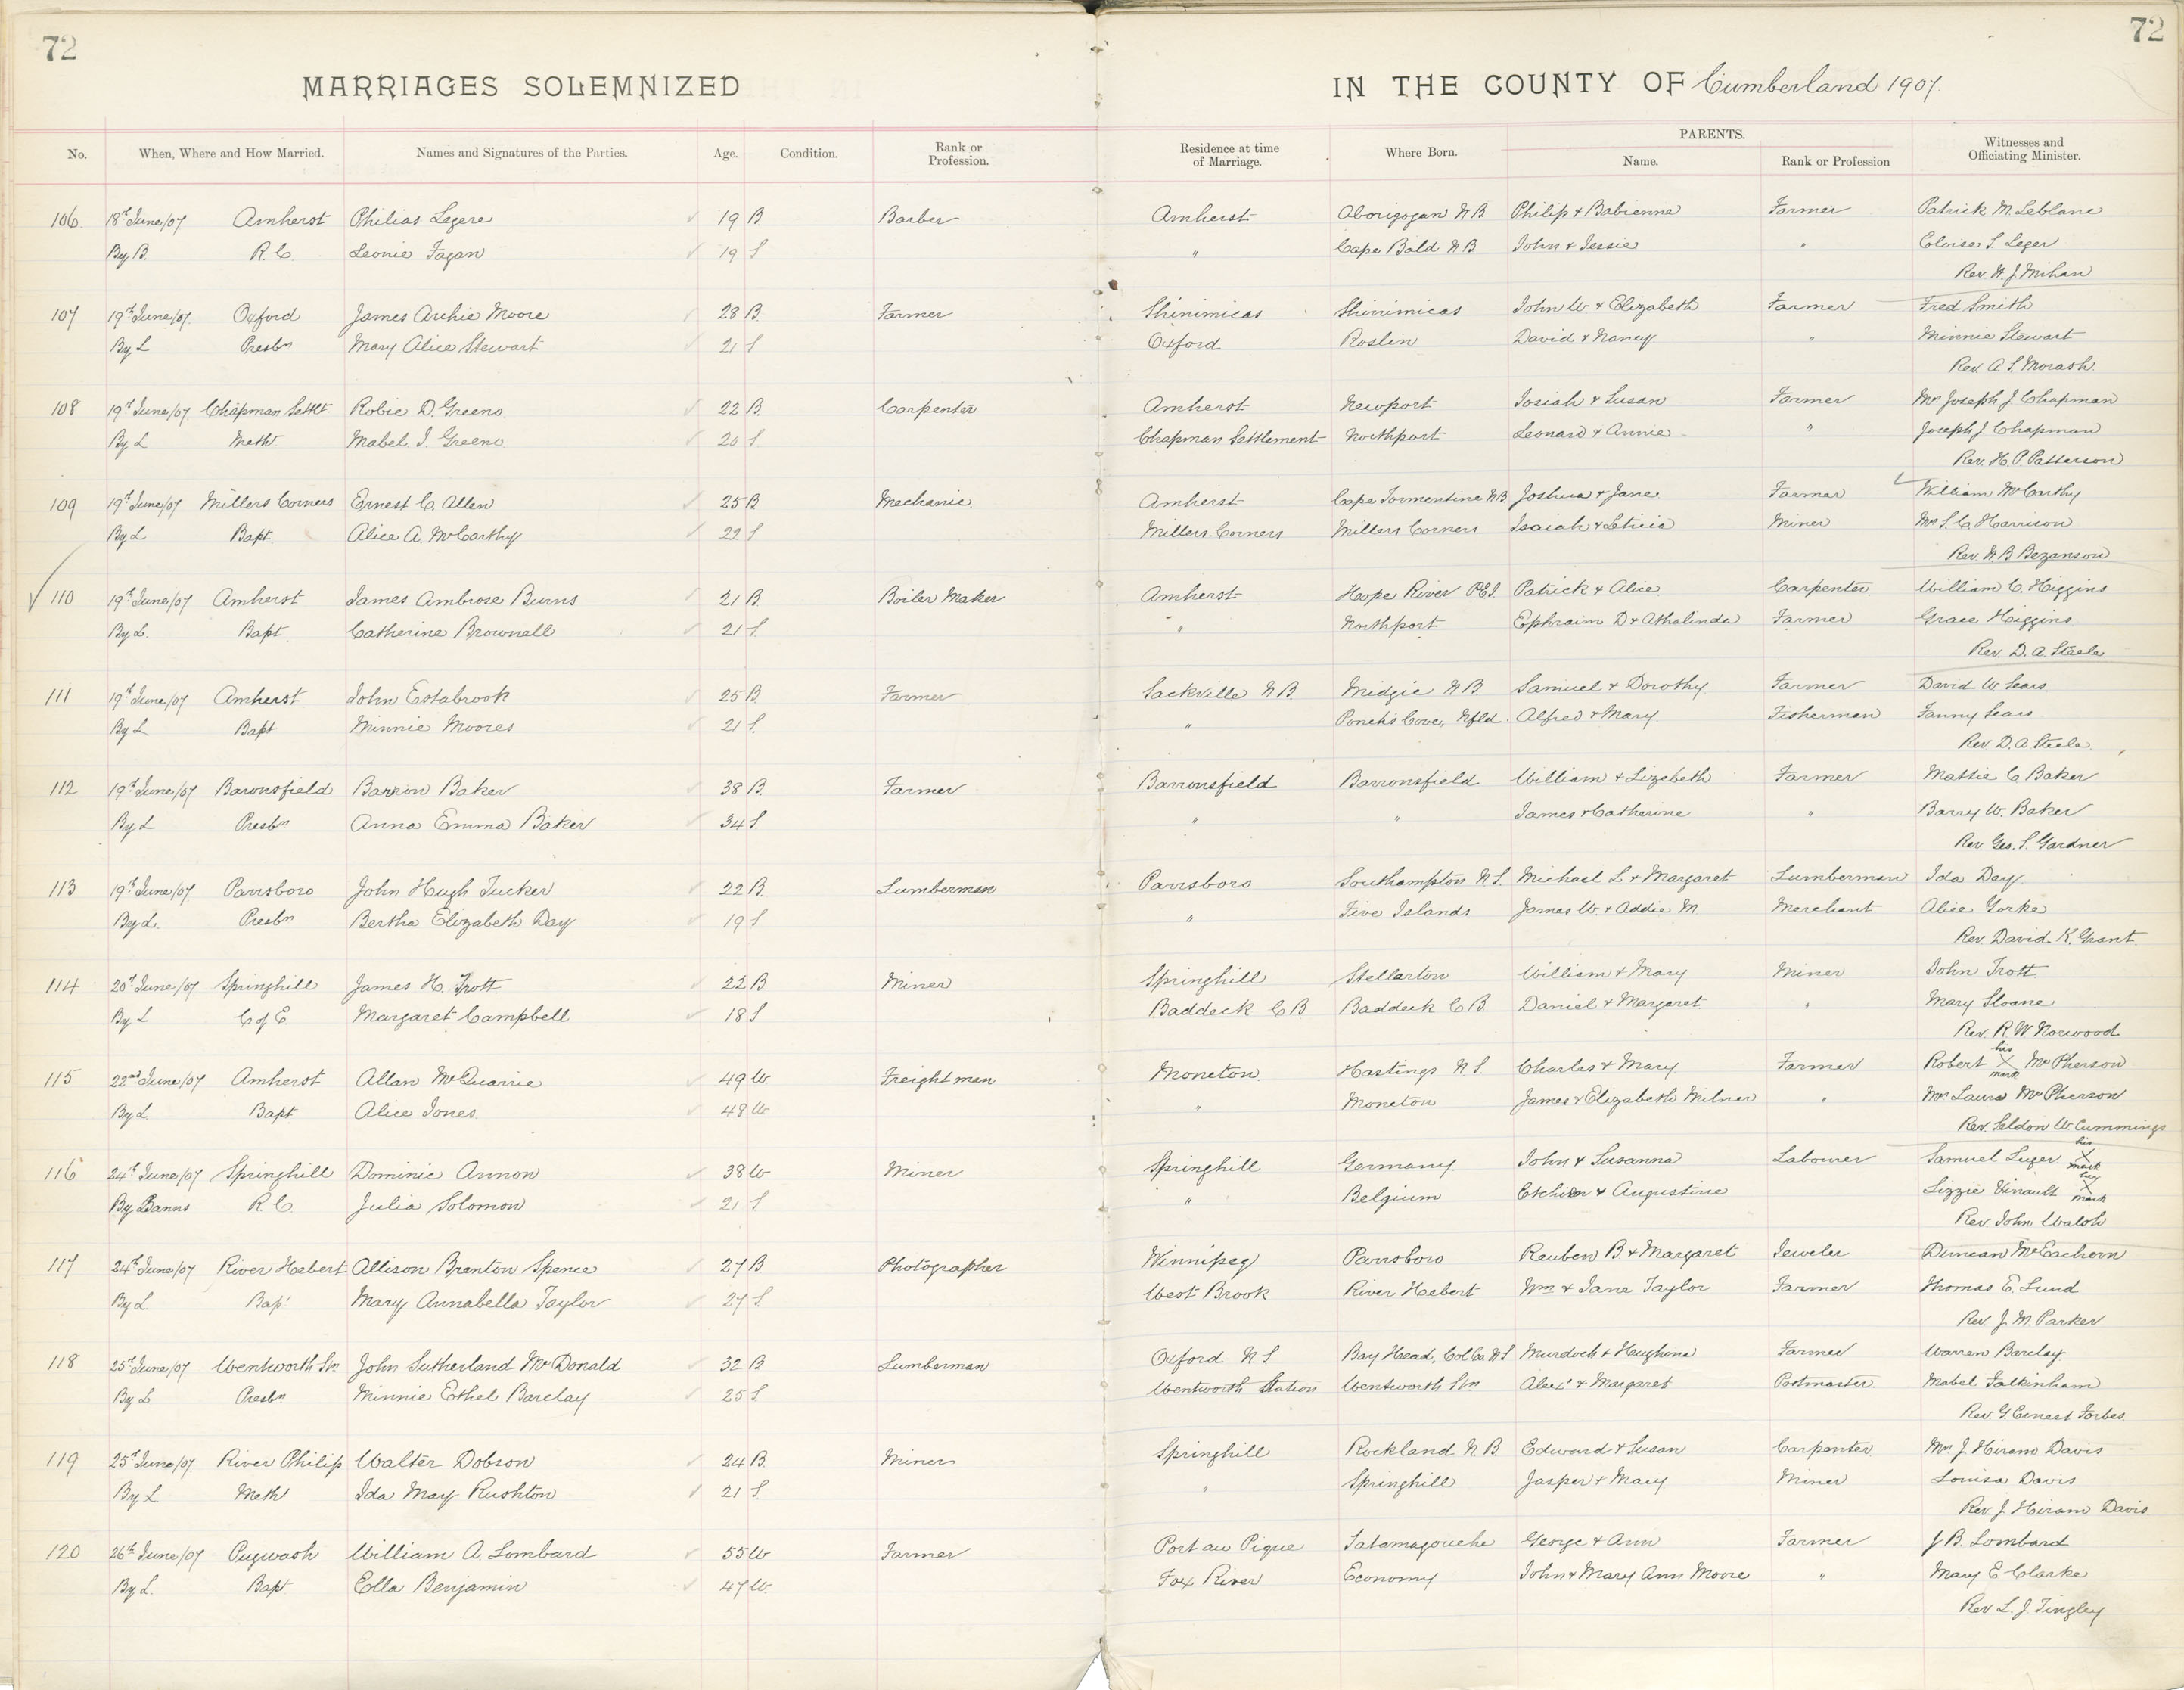 72
72
MARRIAGES SOLEMNIZED
IN THE COUNTY OF Cumberland 1907.
No. When, Where and How Married. Names and Signatures of the Parties. Age. Condition. Rank or Profession. Residence at time of Marriage. Where Born. PARENTS. Name. Rank or Profession Witnesses and Officiating Minister.
106. 18th June/07 Amherst Philias Legere 19 B Barber Amherst Aborigogan N B Philip & Babienne Farmer Patrick M. Leblanc
By B. R. C. Leonie Fagan 19 S " Cape Bald N B John & Jessie " Eloise S. Leger
Rev. H. J. Mihan
107 19th June/07. Oxford James Archie Moore 28 B. Farmer Shinimicas Shinimicas John W. & Elizabeth Farmer Fred Smith
By L Presbn Mary Alice Stewart 21 S Oxford Roslin David & Nancy " Minnie Stewart
Rev. A. L. Morash.
108 19th June/07 Chapman Settlt. Robie D. Greeno 22 B. Carpenter Amherst Newport Josiah & Susan Farmer Mrs Joseph J. Chapman
By L Meth Mabel I. Greeno 20 S. Chapman Settlement Northport Leonard & Annie " Joseph J. Chapman
Rev. H. P. Patterson
109 19th June/07 Millers Corners Ernest C. Allen 25 B Mechanic. Amherst Cape Tormentine N B. Joshua & Jane Farmer William McCarthy
By L Bapt. Alice A. McCarthy 22 S. Millers Corners Millers Corners Isaiah & Leticia Miner Mrs S. C. Harrison
Rev. W. B. Bezanson
110 19th June/07 Amherst James Ambrose Burns 21 B. Boiler Maker Amherst Hope River P.E.I. Patrick & Alice Carpenter William C. Higgins
By L. Bapt. Catherine Brownell 21 S. " Northport Ephraim D & Athalinda Farmer Grace Higgins.
Rev. D. A. Steele
111 19th June/07 Amherst John Estabrook 25 B. Farmer Sackville N B. Midgic N B. Samuel & Dorothy Farmer David W. Sears
By L Bapt Minnie Moores 21 S. " Ponchs Cove, Nfld. Alfred & Mary. Fisherman Fanny Sears
Rev. D. A. Steele
112 19th June/07 Baronsfield Barron Baker 38 B. Farmer Barronsfield Barronsfield William & Lizebeth Farmer Mattie C Baker
By L Presbn Anna Emma Baker 34 S. " " James & Catherine " Barry W. Baker
Rev Geo. S. Gardner
113 19th June/07 Parrsboro John Hugh Tucker 22 B. Lumberman Parrsboro Southampton N S. Michael L & Margaret Lumberman Ida Day
By L. Presbn Bertha Elizabeth Day 19 S " Five Islands James W. & Addie M. Merchant. Alice Yorke
Rev. David K. Grant.
114 20th June/07 Springhill James H. Trott 22 B Miner Springhill Stellarton William & Mary Miner John Trott
By L C of E. Margaret Campbell 18 S Baddeck C B Baddeck C B Daniel & Margaret. " Mary Sloane
Rev. R W Norwood
115 22nd June/07 Amherst Allan McQuarrie 49 W Freight man Moncton. Hastings N. S. Charles & Mary Farmer Robert his X mark McPherson
By L. Bapt. Alice Jones. 48 W " Moncton James & Elizabeth Milner " Mrs Laura McPherson
Rev. Seldon W. Cummings
116 24th June/07 Springhill Dominic Annon 38 W Miner Springhill Germany John & Susanna Labourer Samuel Luger his X mark
By Banns R. C. Julia Solomon 21 S " Belgium & Augustine Lizzie Vinault her X mark
Rev. John Walsh
117 24th June/07 River Hebert Allison Brenton Spence 27 B Photographer Winnipeg Parrsboro Reuben B. & Margaret Jeweler Duncan McEachern
By L Bap' Mary Annabella Taylor 27 S. West Brook River Hebert Wm & Jane Taylor Farmer Thomas E. Lund
Rev. J. M. Parker
118 25th June/07 Wentworth Stn John Sutherland McDonald 32 B Lumberman Oxford N S Bay Head, Col Co. N S Murdoch & Hughina Farmer Warren Barclay
By L Presbn. Minnie Ethel Barclay 25 S. Wentworth Station Wentworth Stn Alexr & Margaret Postmaster. Mabel Falkinham
Rev. G. Ernest Forbes.
119 25th June/07 River Philip Walter Dobson 24 B. Miner Springhill Rockland N. B. Edward & Susan Carpenter Mrs J. Hiram Davis
By L Meth Ida May Rushton 21 S. " Springhill Jasper & Mary Miner Louisa Davis
Rev. J. Hiram Davis.
120 26th June/07 Pugwash William A. Lombard 55 W Farmer Port au Pique Tatamagouche George & Ann Farmer J B. Lombard
By L. Bapt Ella Benjamin 47 W. Fox River Economy John & Mary Ann Moore " Mary E Clarke
Rev L. J. Tingley